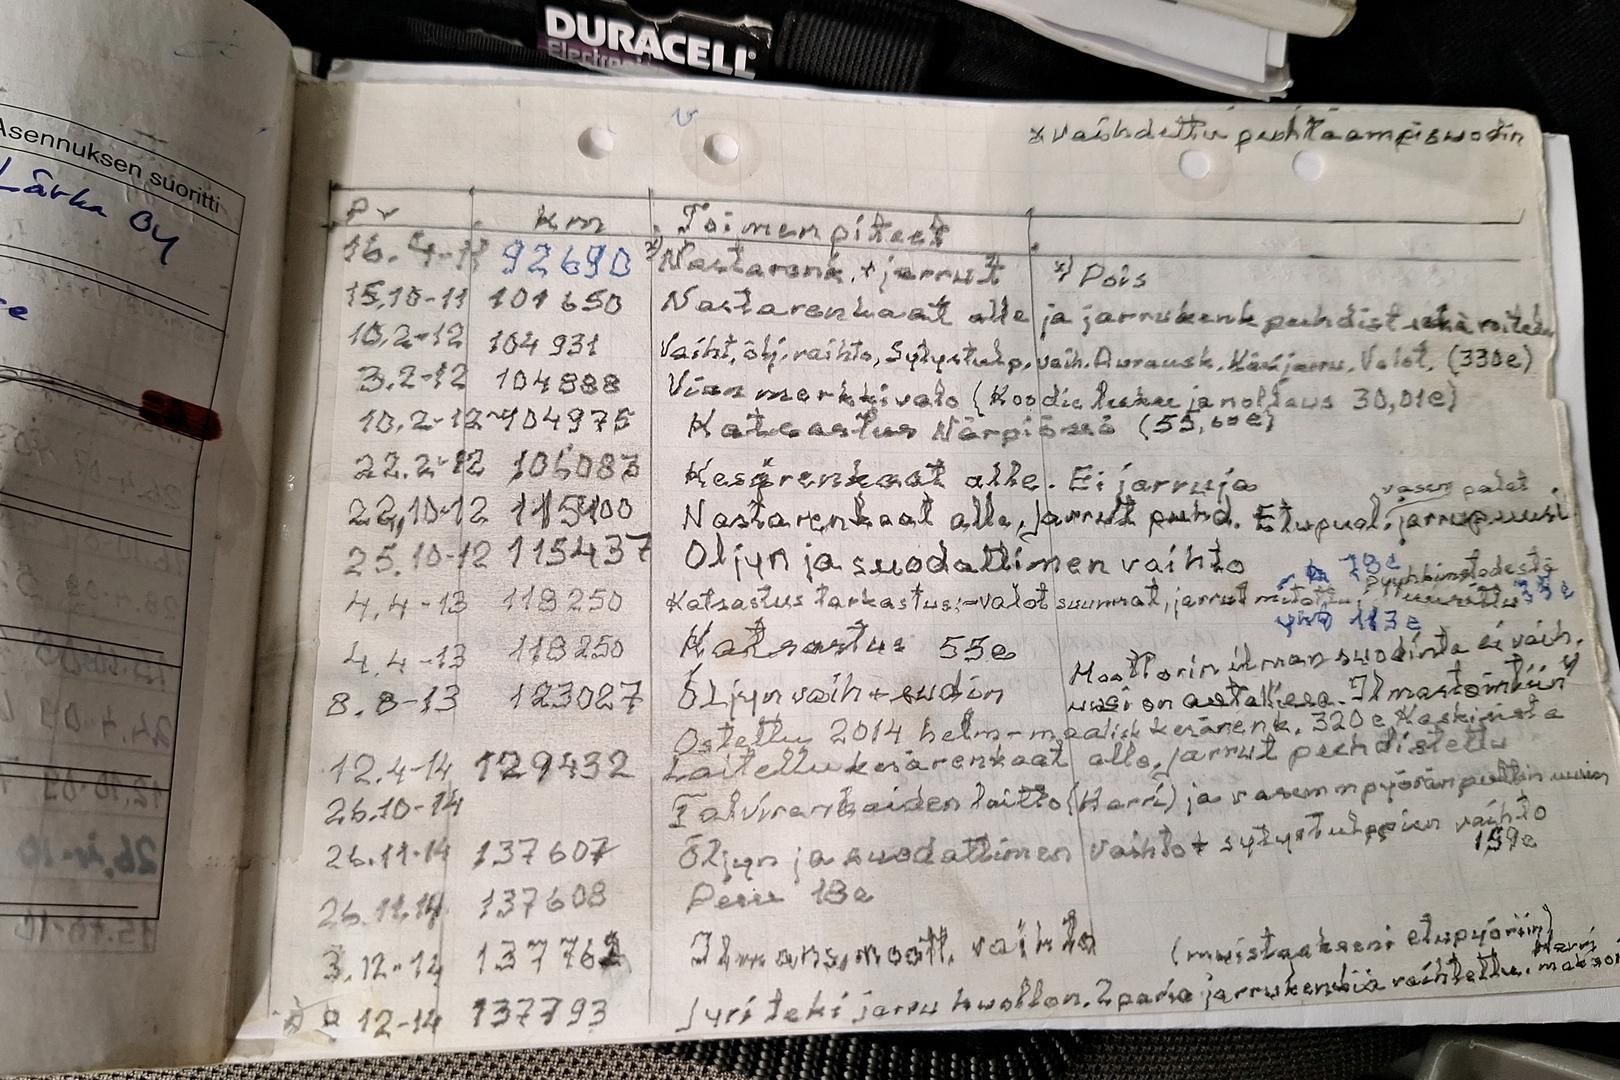 DURACELL
Electroni
Asennuksen suoritti
Lärka Oy
* vaihdettu puhtaampi suodin
Pv km Toimenpiteet
16.4-11 92690 *) Nastarenk. + jarrut *) Pois
15.10-11 101650 Nastarenkaat alle ja jarrukenk puhdist sekä voitelu
10.2-12 104931 Vaiht. ölj. vaihto, Sytystulp. vaih. Aurausk. Käsijarru, Valot, (330e)
3.2-12 104888 Vian merkkivalo (Koodin luku ja nollaus 30,01e)
10.2-12 104975 Katsastus Närpiössä (55,60e)
22.2-12 105087 Kesärenkaat alle. Ei jarruja
vasen palat
22.10-12 115400 Nastarenkaat alle, jarrut puhd. Etupuol. jarrupuusi
25.10-12 115437 Öljyn ja suodattimen vaihto
78e
4.4-13 118250 Katsastus tarkastus:-valot suunnat, jarrut mitattu, 35e
113e
4.4-13 118250 Katsastus 55e
Moottorin ilman suodinta ei vaih.
8.8-13 123027 Öljyn vaih + suodin uusi on astallessa. Ilmastointiin
Ostettu 2014 helm-maalisk kesärenk. 320e Kaskisista
12.4-14 129432 Laitettu kesärenkaat alle, jarrut puhdistettu
26.10-14 Talvirenkaiden laitto (Harri) ja vasemm pyörän pultin
26.11-14 137607 Öljyn ja suodattimen vaihto + sytystulppien vaihto
159e
26.11.14 137608 Pesu 18e
3.12-14 137762 Ilmans. moott. vaihto (muistaakseni etupyöriin)
12-14 137793 Jyri teki jarru huollon. 2 paria jarrukenkiä vaihdettu. Harri maksoi